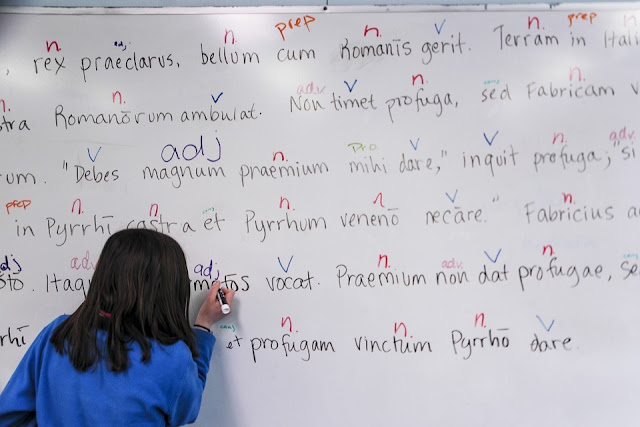 n. adj. n. prep n. v n. prep
, rex praeclarus, bellum cum Romanīs gerit. Terram in Itali
n. n. v adv v n. conj n.
tra Romanōrum ambulat. Non timet profuga, sed Fabricam v
v adj n. pro. v v n. adv
rum. "Debes magnum praemium mihi dare," inquit profuga; "si
prep n. n. conj n. n. v n.
in Pyrrhī castra et Pyrrhum venenō necāre." Fabricius a
adj adv adj v n. adv. v n.
sto. Itaq tōs vocat. Praemium non dat profugae, se
conj n. n. n. v
rhī et profugam vinctum Pyrrhō dare.